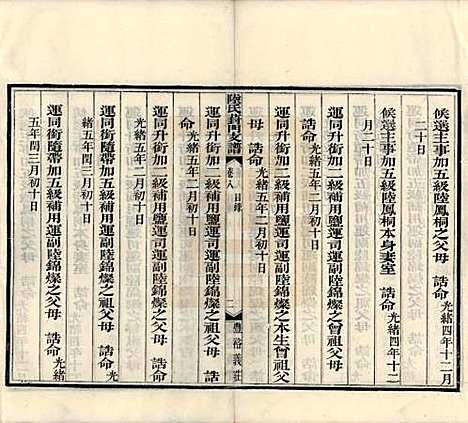 候選主事加五級陸鳳桐之父母　誥命光緒四年十二月
二十日
候選主事加五級陸鳳桐本身妻室　誥命光緒四年十二
月二十日
運同升銜加二級補用鹽運司運副陸錦燦之曾祖父
母　誥命光緒五年二月初十日
運同升銜加二級補用鹽運司運副陸錦燦之本生曾祖父
母　誥命光緒五年二月初十日
陸氏葑門支譜　卷八　目錄　二　豊裕義莊
運同升銜加二級補用鹽運司運副陸錦燦之祖父母　誥
命光緒五年二月初十日
運同升銜加二級補用鹽運司運副陸錦燦之父母　誥命
光緒五年二月初十日
運同銜隨帶加五級補用運副陸錦燦之祖父母　誥命光
緒五年閏三月初十日
運同銜隨帶加五級補用運副陸錦燦之父母　誥命光緒
五年閏三月初十日